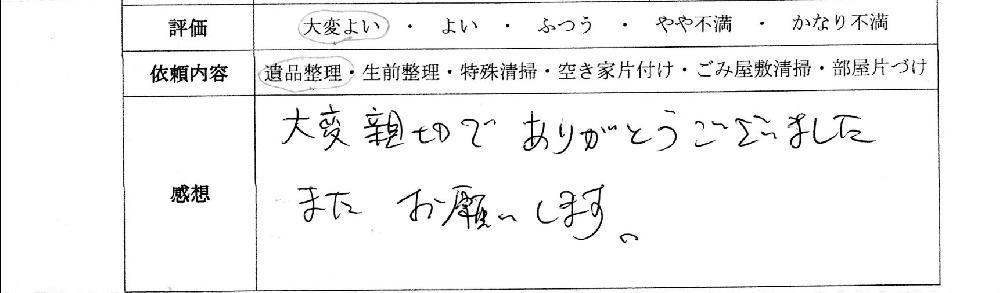 評価 大変よい ・ よい ・ ふつう ・ やや不満 ・ かなり不満
依頼内容 遺品整理・生前整理・特殊清掃・空き家片付け・ごみ屋敷清掃・部屋片づけ
感想
大変親切で ありがとうございました
また お願いします。